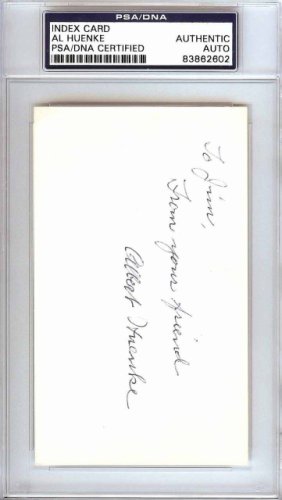 PSA/DNA
INDEX CARD
AL HUENKE
PSA/DNA CERTIFIED
AUTHENTIC
AUTO
83862602
To Jim,
From your friend
Albert Huenke